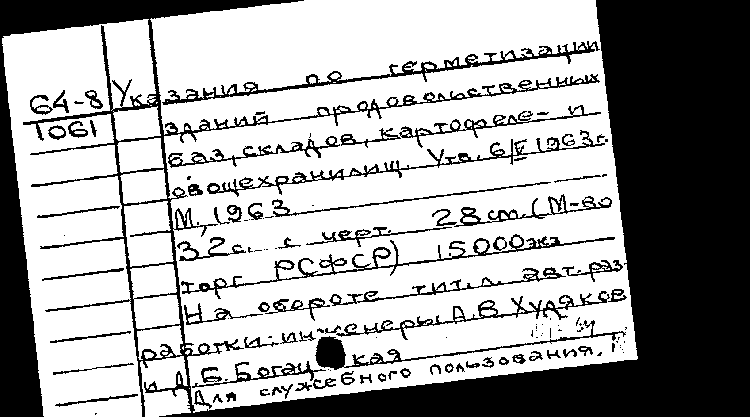 64-8 Указания по герметизации
Т061 зданий продовольственных
баз, складов, картофеле- и
овощехранилищ. Утв. 6/V 1963г.
М., 1963.
32с. с черт. 28см. (М-во
торг РСФСР) 15000экз
На обороте тит.л. авт.раз-
работки: инженеры А.В Худяков
и Богац кая
Для служебного пользования.